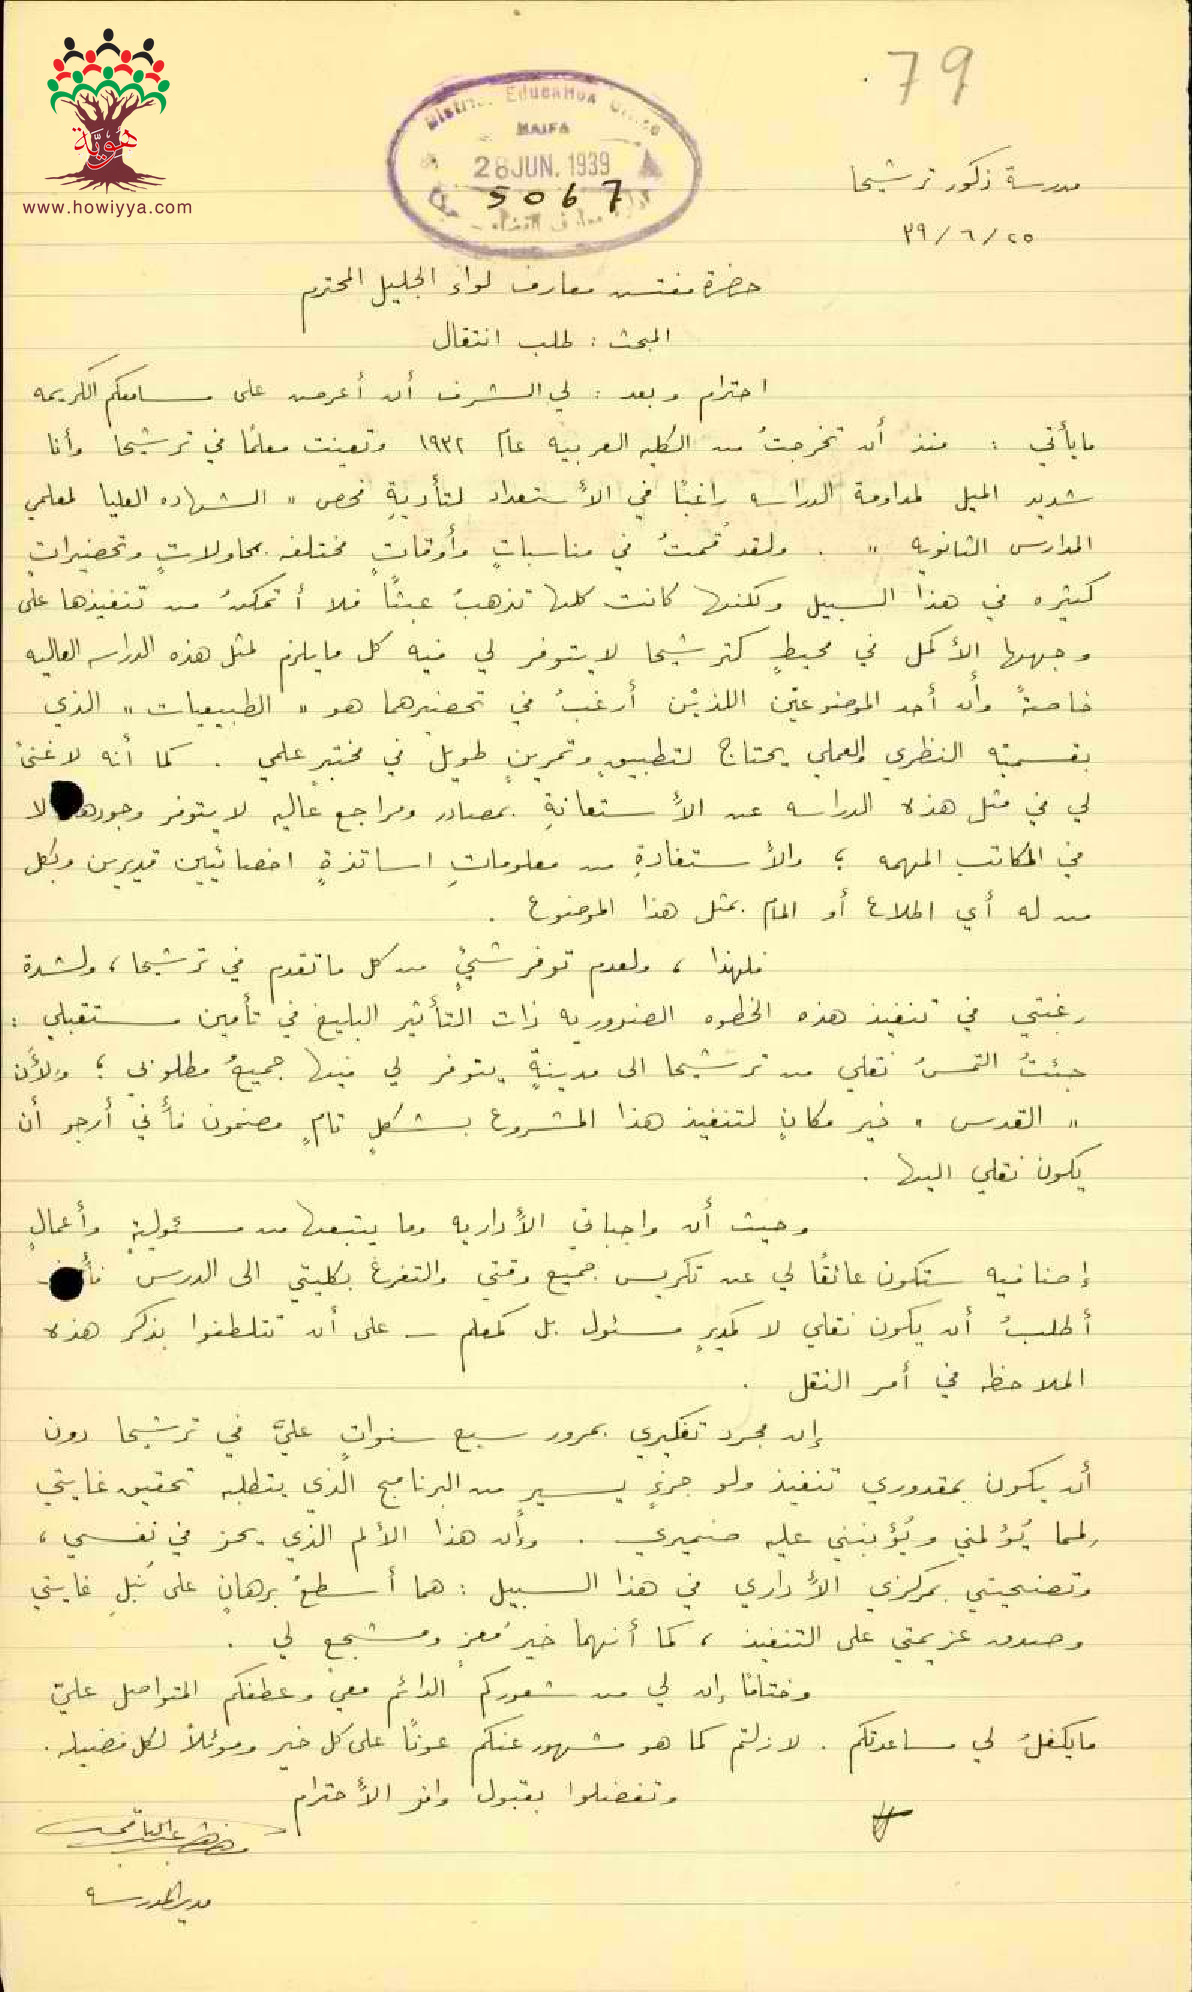 79
هويّة
www.howiyya.com
District Education Office
HAIFA
28 JUN. 1939
5067
مدرسة ذكور ترشيحا
٢٥/٦/٣٩
حضرة مفتش معارف لواء الجليل المحترم
المبحث : طلب انتقال
احترام وبعد : لي الشرف أن أعرض على مسامعكم الكريمه
مايأتي : منذ أن تخرجتُ من الكليه العربيه عام ١٩٣٢ وتعينت معلمًا في ترشيحا وأنا
شديد الميل لمداومة الدراسه راغبًا في الأستعداد لتأديةِ فحص " الشهاده العليا لمعلمي
المدارس الثانويه " . ولقد قمتُ في مناسباتٍ وأوقاتٍ مختلفه بمحاولاتٍ وتحضيراتٍ
كثيره في هذا السبيل ولكنها كانت كلها تذهبُ عبثًا فلا أتمكنُ من تنفيذها على
وجهها الأكمل في محيطٍ كترشيحا لايتوفر لي فيه كل مايلزم لمثل هذه الدراسه العاليه
خاصةً وأن أحد الموضوعيْن اللذيْن أرغبُ في تحضيرهما هو " الطبيعيات " الذي
بقسميْه النظري والعملي يحتاج لتطبيقٍ وتمرينٍ طويل في مختبرٍ علمي . كما أنه لاغنىً
لي في مثل هذه الدراسه عن الأستعانةِ بمصادر ومراجع عاليه لايتوفر وجودها لا
في المكاتب المهمه ؛ والأستفادةِ من معلوماتِ اساتذةٍ اخصائيين قديرين وبكل
من له أي اطلاع أو المام بمثل هذا الموضوع .
فلهذا ، ولعدم توفر شيْءٍ من كل ماتقدم في ترشيحا ، ولشدة
رغبتي في تنفيذ هذه الخطوه الضروريه ذات التأثير البليغ في تأمين مستقبلي :
جئتُ التمسُ نقلي من ترشيحا الى مدينةٍ يتوفر لي فيها جميعُ مطلوبي ؛ ولأَن
" القدس " خير مكانٍ لتنفيذ هذا المشروع بشكلٍ تامٍ مضمون فأني أرجو أن
يكون نقلي اليها .
وحيث أن واجباتي الأداريه وما يتبعها من مسئوليةٍ وأعمالٍ
إضافيه ستكون عائقًا لي عن تكريس جميع وقتي والتفرغ بكليتي الى الدرس
أطلبُ أن يكون نقلي لا كمديرٍ مسئول بل كمعلم – على أن تتلطفوا بذكر هذه
الملاحظه في أمر النقل .
إن مجرد تفكيري بمرور سبع سنواتٍ عليَّ في ترشيحا دون
أن يكون بمقدوري تنفيذ ولو جزءٍ يسيرٍ من البرنامج الذي يتطلبه تحقيق غايتي
لمما يُؤلمني ويُؤنبني عليه ضميري . وأن هذا الألم الذي يحز في نفسي ،
وتضحيتي بمركزي الأداري في هذا السبيل : هما أسطعُ برهانٍ على نُبلِ غايتي
وصدق عزيمتي على التنفيذ ، كما أنهما خيرُ معزٍ ومشجعٍ لي .
وختامًا إن لي من شعوركم الدائم معي وعطفكم المتواصل عليّ
مايكفلُ لي مساعدتكم . لازلتم كما هو مشهور عنكم عونًا على كل خير وموئلاً لكل فضيله .
وتفضلوا بقبول وافر الأحترام
مدير المدرسه